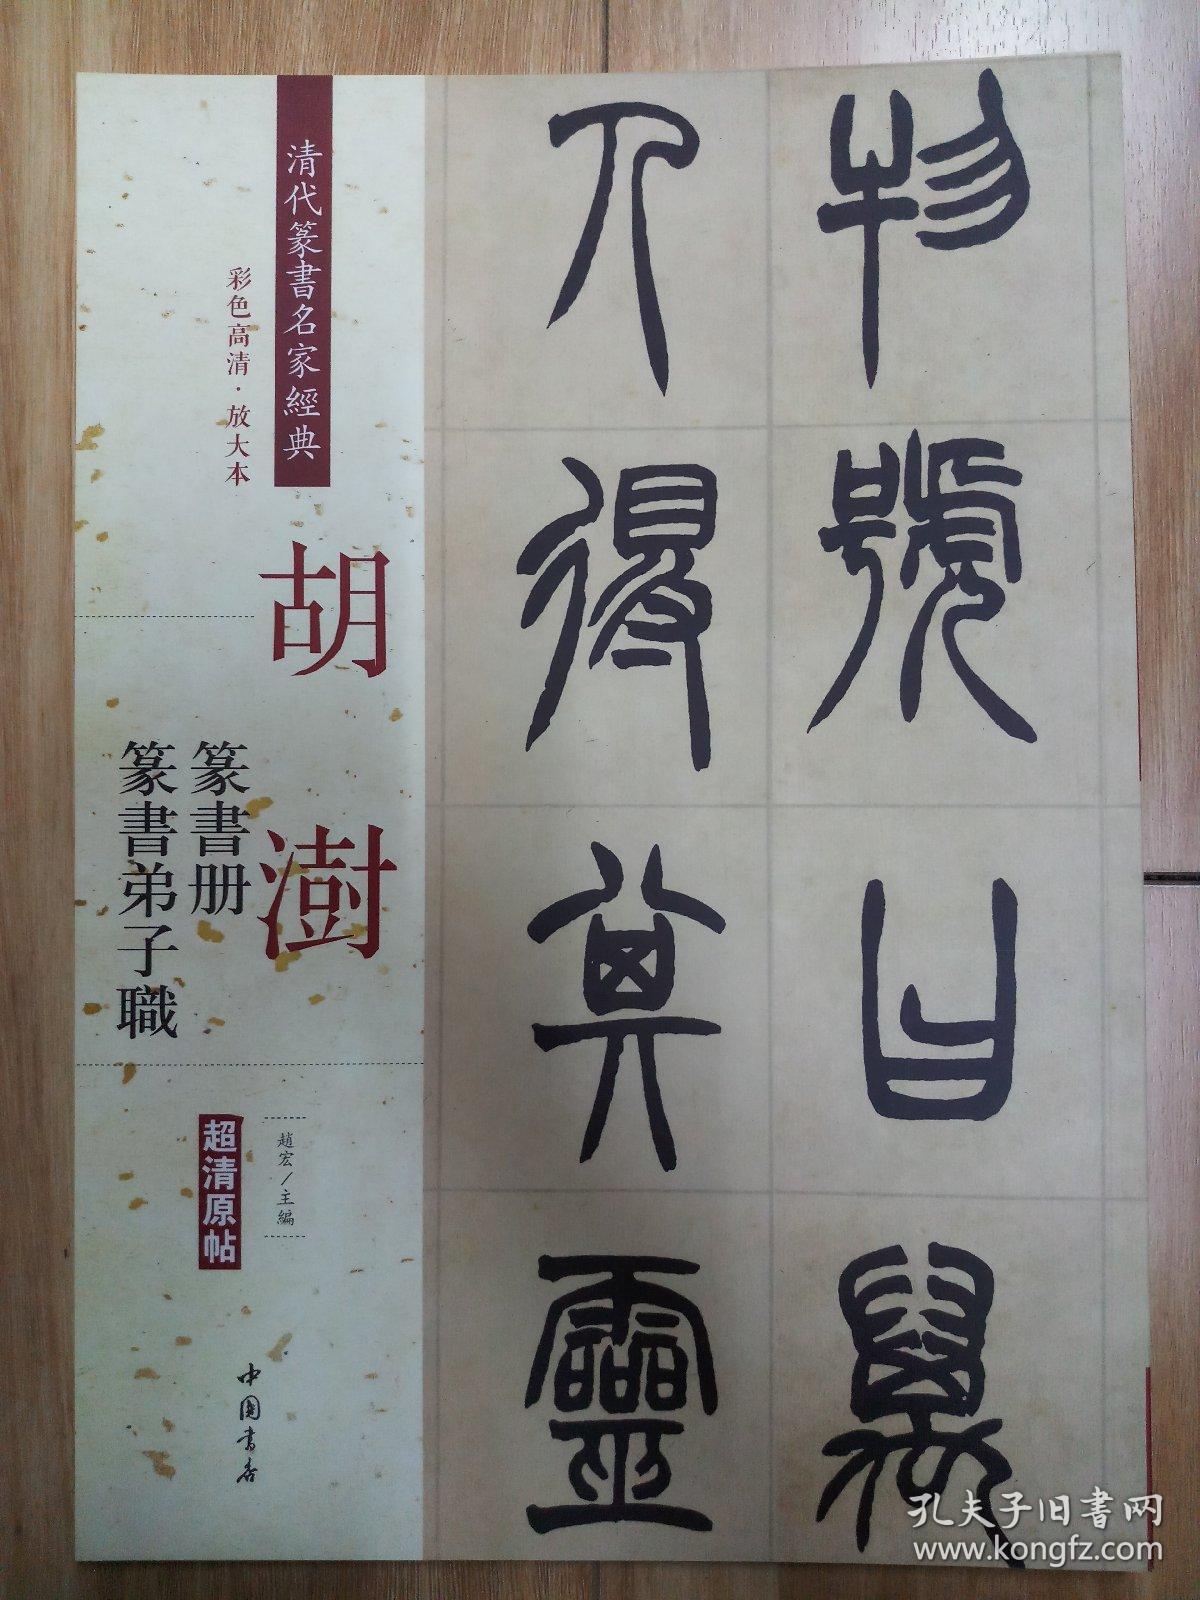 清代篆書名家經典
彩色高清·放大本
胡澍
篆書册
篆書弟子職
趙宏/主編
超清原帖
中国书店
物號曰萬
人得其靈
孔夫子旧書网
www.kongfz.com